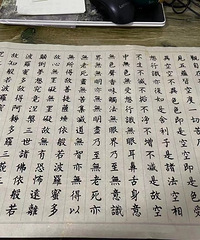 觀自在
見五蘊皆空度
空不異色色即是空空即是
想行識亦復如是舍利子是諸法空相
不生不滅不垢不淨不增不減是故空
中無色無受想行識無眼耳鼻舌身意
無色聲香味觸法無眼界乃至無意識
界無無明亦無無明盡乃至無老死亦
無老死盡無苦集滅道無智亦無得以
無所得故菩提薩埵依般若波羅蜜多
故心無罣礙無罣礙故無有恐怖遠離
顛倒夢想究竟涅槃三世諸佛依般若
波羅蜜多故得阿耨多羅三藐三
故知般若波羅蜜多